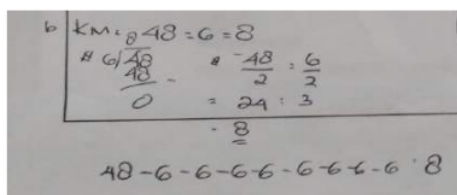 b KM: 48 = 6 = 8
8
6/48
48 -
0
-48/2 : 6/2
= 24 : 3
- 8
48-6-6-6-6-6-6-6-6 · 8